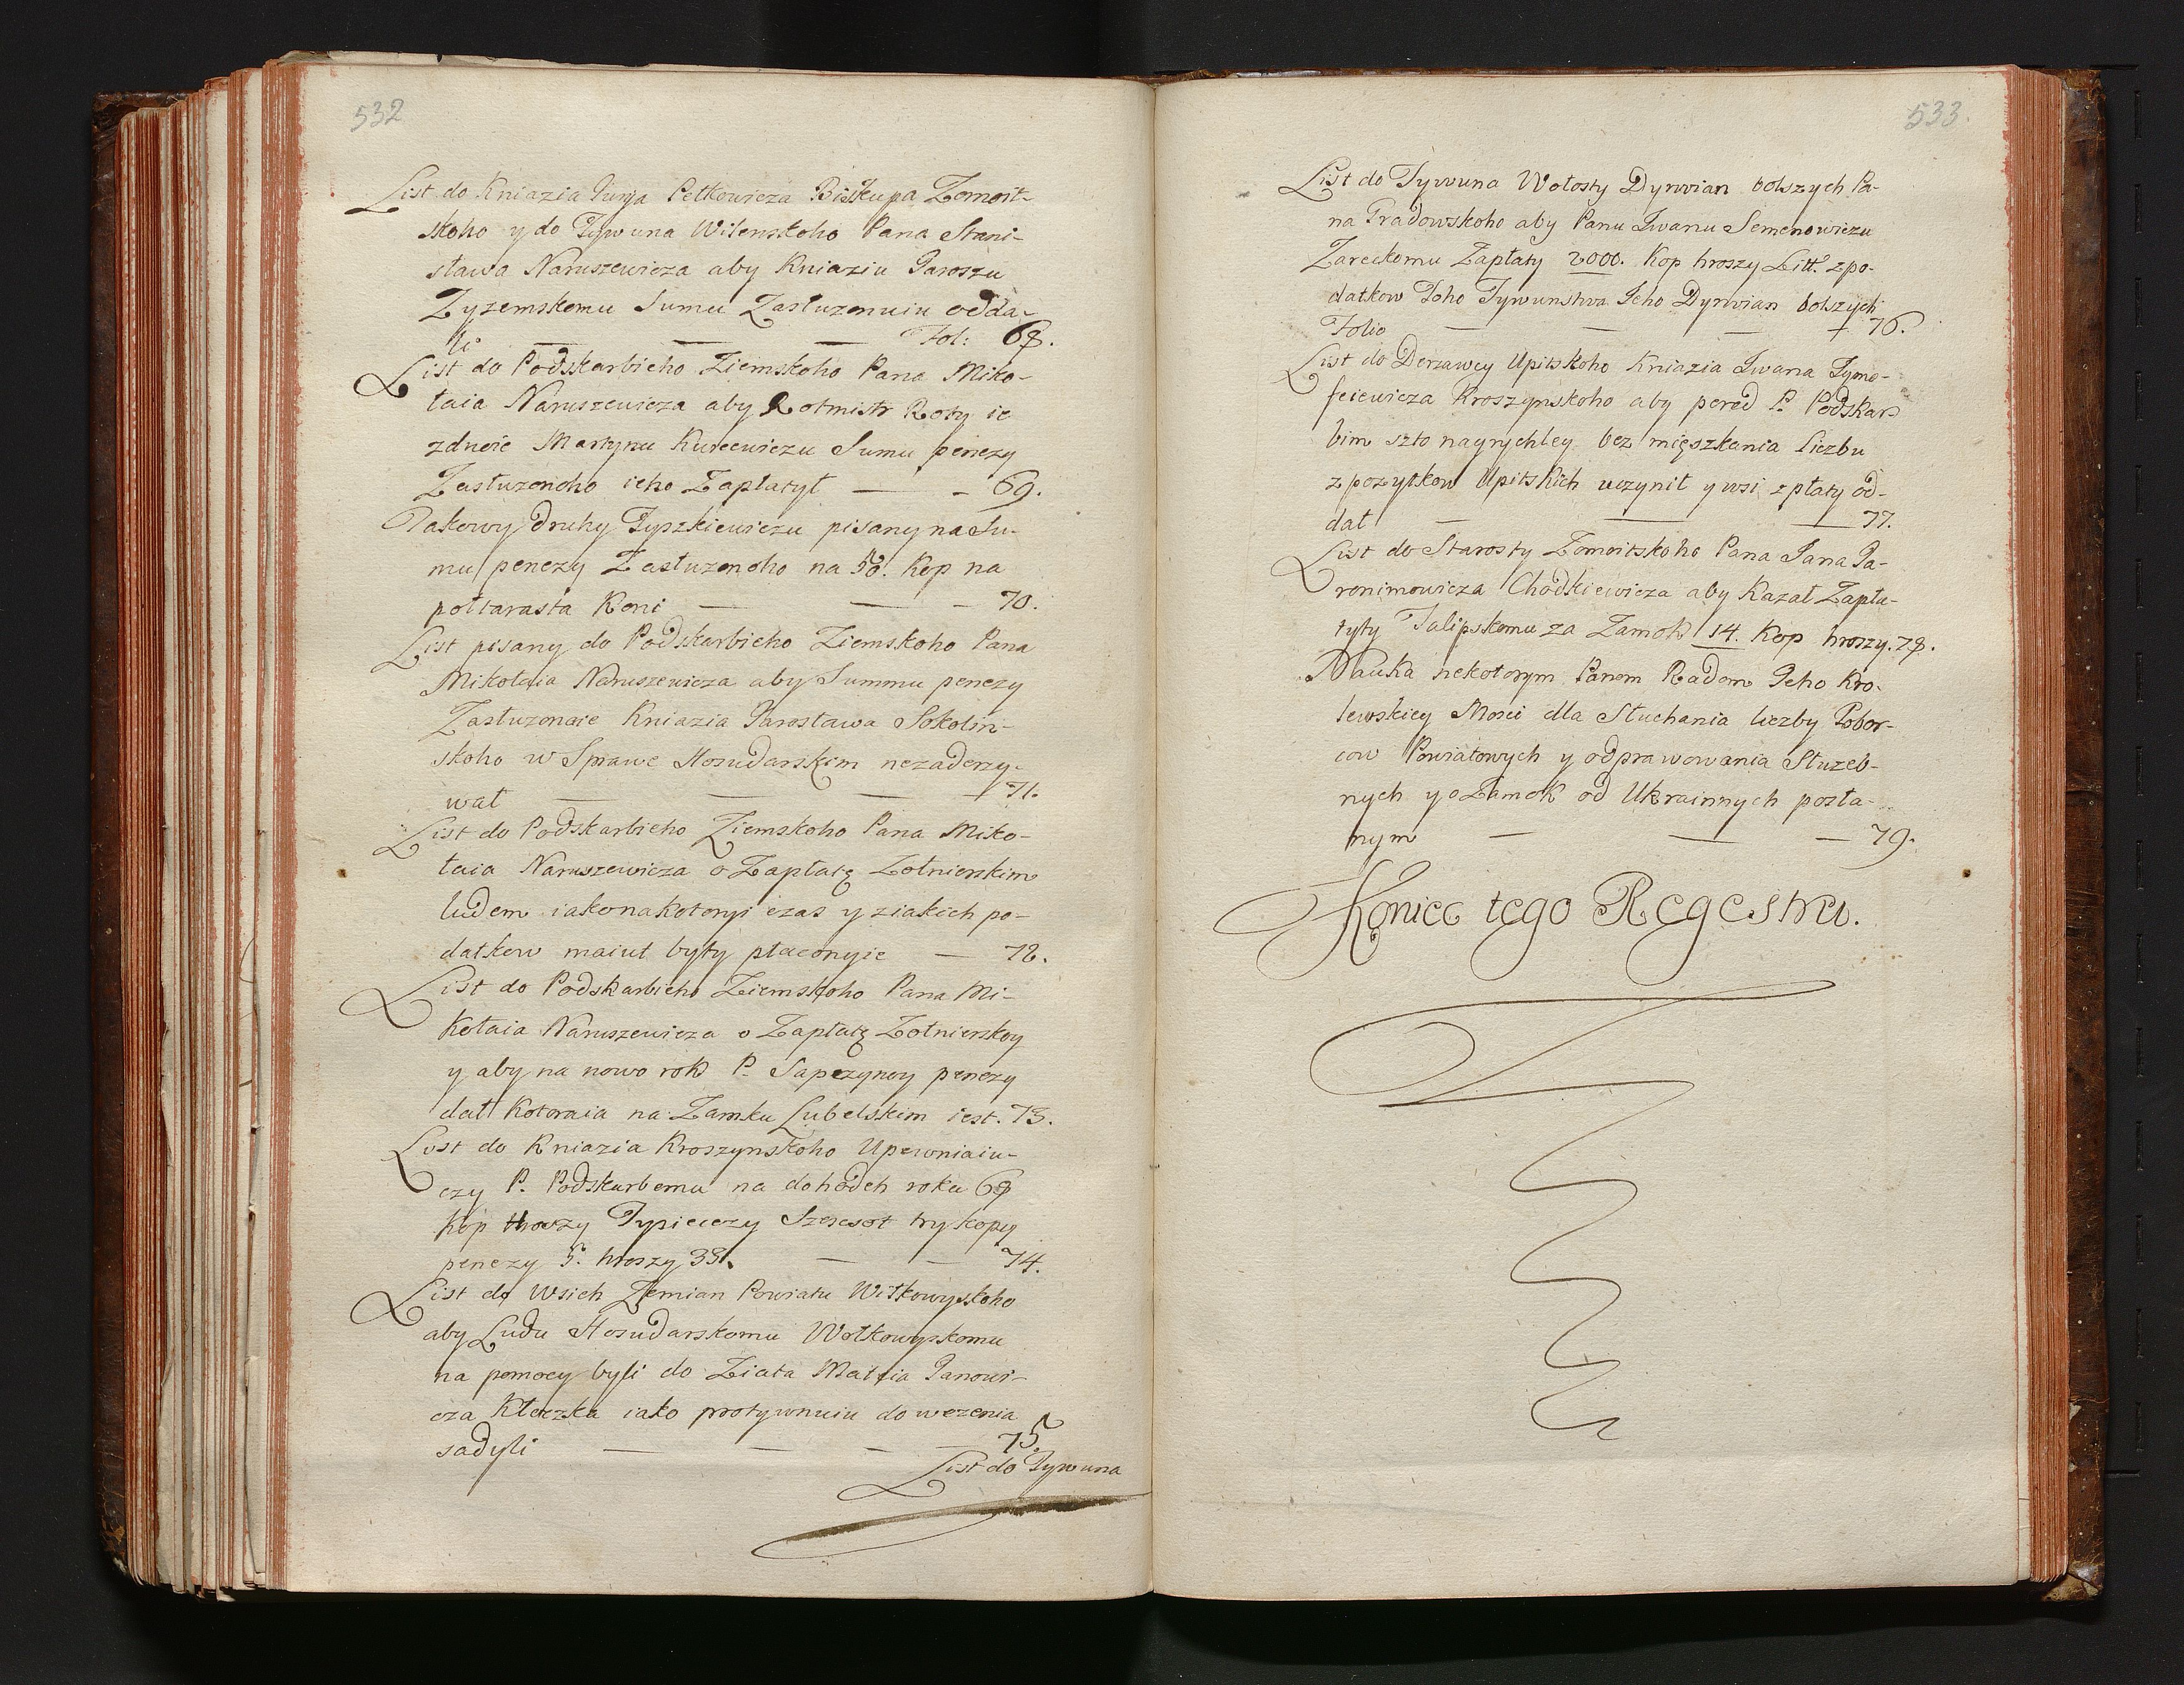 532
List do Kniazia Jurja Petkowicza Biskupa Zomoit-
skoho y do Tywuna Wilenskoho Pana Stani-
sława Naruszewicza aby Kniaziu Jaroszu
Zyzemskomu Sumu Zasłuzenuiu odda-
li Fol: 68.
List do Podskarbieho Ziemskoho Pana Miko-
łaia Naruszewicza aby Rotmistr Roty ie
zdnoie Martynu Kurcewiczu Sumu penezy
Zasłuzonoho ieho Zapłatył 69.
Takowy druhy Tyszkiewiczu pisany na Su-
mu penezy Zasłuzonoho na 50. Kop na
połtarasta Koni 70.
List pisany do Podskarbieho Ziemskoho Pana
Mikołaia Naruszewicza aby Summu penezy
Zasłuzonoie Kniazia Jarosława Sokolin-
skoho w Sprawe Hosudarskim nezaderzy-
wał 71.
List do Podskarbieho Ziemskoho Pana Miko-
łaia Naruszewicza o Zapłatę Zołnierskim
ludem iako na kotoryi czas y z iakich po-
datkow maiut byty płaconyie 72.
List do Podskarbieho Ziemskoho Pana Mi-
kołaia Naruszewicza o Zapłatę Zołnierskoy
y aby na nowo rok P. Sapezynoy penezy
dał kotoraia na Zamku Lubelskim iest. 73.
List do Kniazia Kroszynskoho Upewniaiu-
czy P. Podskarbemu na dohodeh roku 69
kop hroszy Tysieczy Szescsot try kopy
penezy 5. hroszy 33. 74.
List do Wsich Zemian Powiatu Wołkowyskoho
aby Ludu Hosudarskomu Wołkowyskomu
na pomocy byli do Ziata Matfia Janowi-
cza Kłoczka iako protywnuiu do wezenia
sadyli 75.
List do Tywuna
533.
List do Tywuna Wołosty Dyrwian bolszych Pa-
na Gradowskoho aby Panu Iwanu Semenowiczu
Zareckomu Zapłaty 2000. Kop hroszy Litt. z po-
datkow Toho Tywunstwa Jeho Dyrwian bolszych
Folio 76.
List do Derzawcy Upitskoho Kniazia Iwana Tymo-
feiewicza Kroszynskoho aby pered P. Podskar-
bim szto nayrychley bez mięszkania liczbu
z pozytkow Upitskich uczynił y wsi z płaty od-
dał 77.
List do Starosty Zomoitskoho Pana Jana Ja-
ronimowicza Chodkiewicza aby Kazał Zapła-
tyty Talipskomu za Zamok 14. Kop hroszy. 78.
Nauka nekotorym Panom Radom Jeho Kro-
lewskiey Mosci dla Słuchania liczby Pobor-
cow Powiatowych y odprawowania Słuzeb-
nych y o Zamok od Ukrainnych posła-
nym 79.
Koniec tego Regestru.